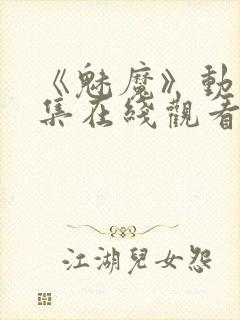 《魅魔》動
集在綫觀看
江湖兒女怨